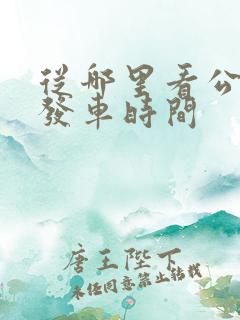 從哪里看公
發車時間
唐王陛下
未经同意禁止转载